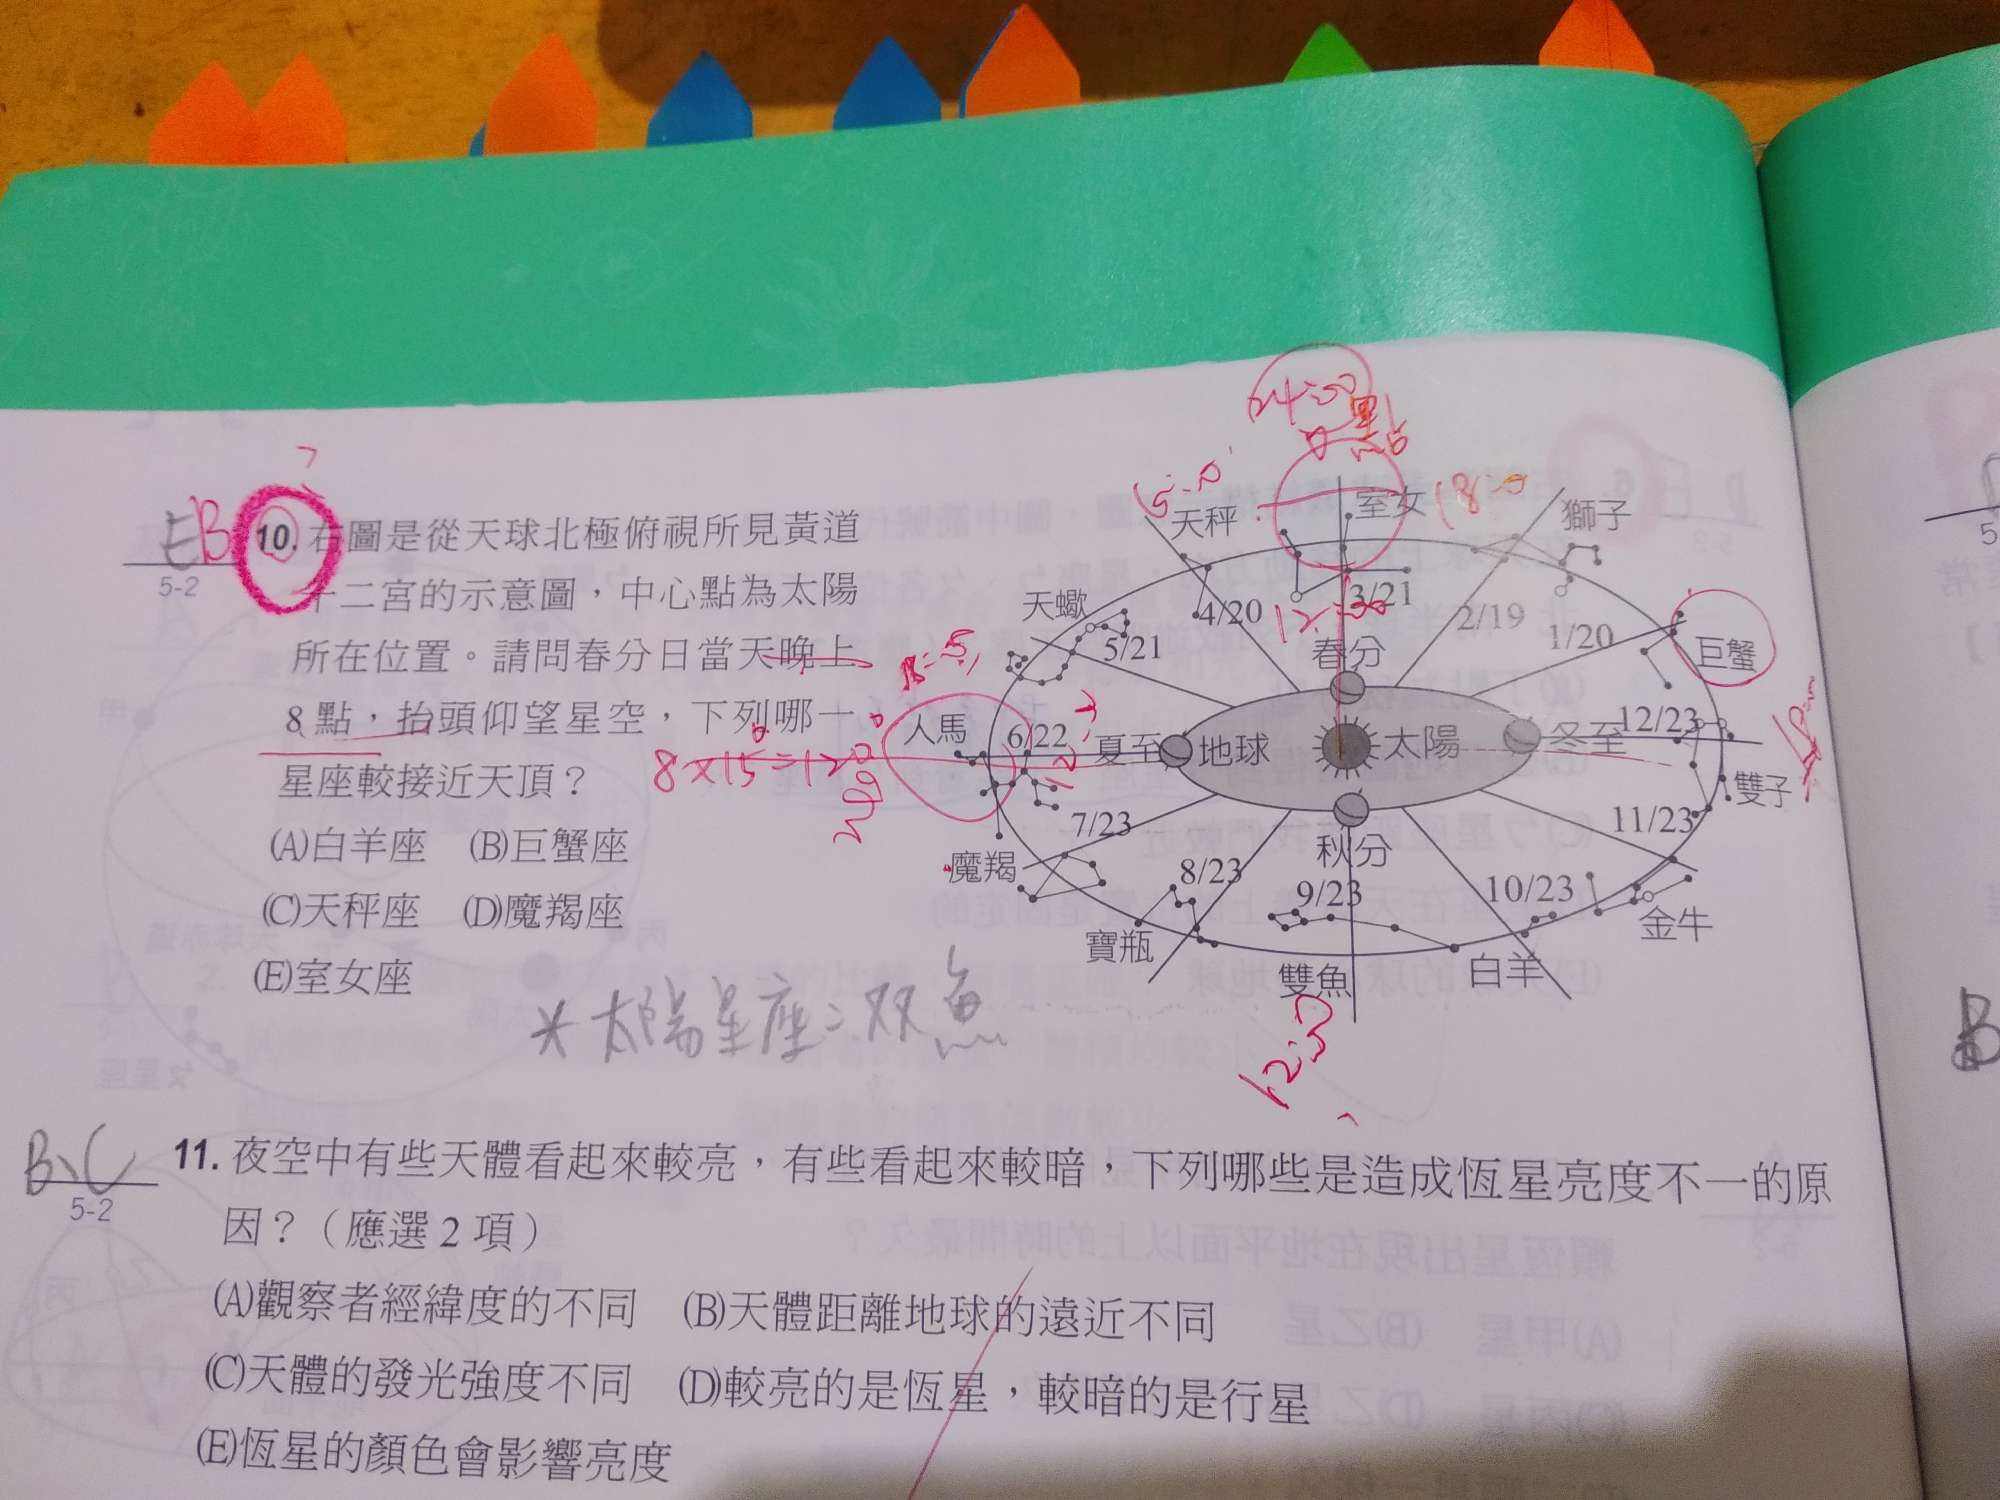 EB
5-2
10. 右圖是從天球北極俯視所見黃道
十二宮的示意圖，中心點為太陽
所在位置。請問春分日當天晚上
8 點，抬頭仰望星空，下列哪一
星座較接近天頂？
(A)白羊座 (B)巨蟹座
(C)天秤座 (D)魔羯座
(E)室女座
8×15°=120°
*太陽星座:双魚
24:00
室女
天秤
獅子
18:0
天蠍
巨蟹
人馬
魔羯
寶瓶
雙魚
白羊
金牛
雙子
3/21
12:00
4/20
2/19
5/21
1/20
6/22
12/23
7/23
11/23
8/23
9/23
10/23
春分
夏至
地球
太陽
冬至
秋分
B、C
5-2
11. 夜空中有些天體看起來較亮，有些看起來較暗，下列哪些是造成恆星亮度不一的原
因？（應選 2 項）
(A)觀察者經緯度的不同 (B)天體距離地球的遠近不同
(C)天體的發光強度不同 (D)較亮的是恆星，較暗的是行星
(E)恆星的顏色會影響亮度
B